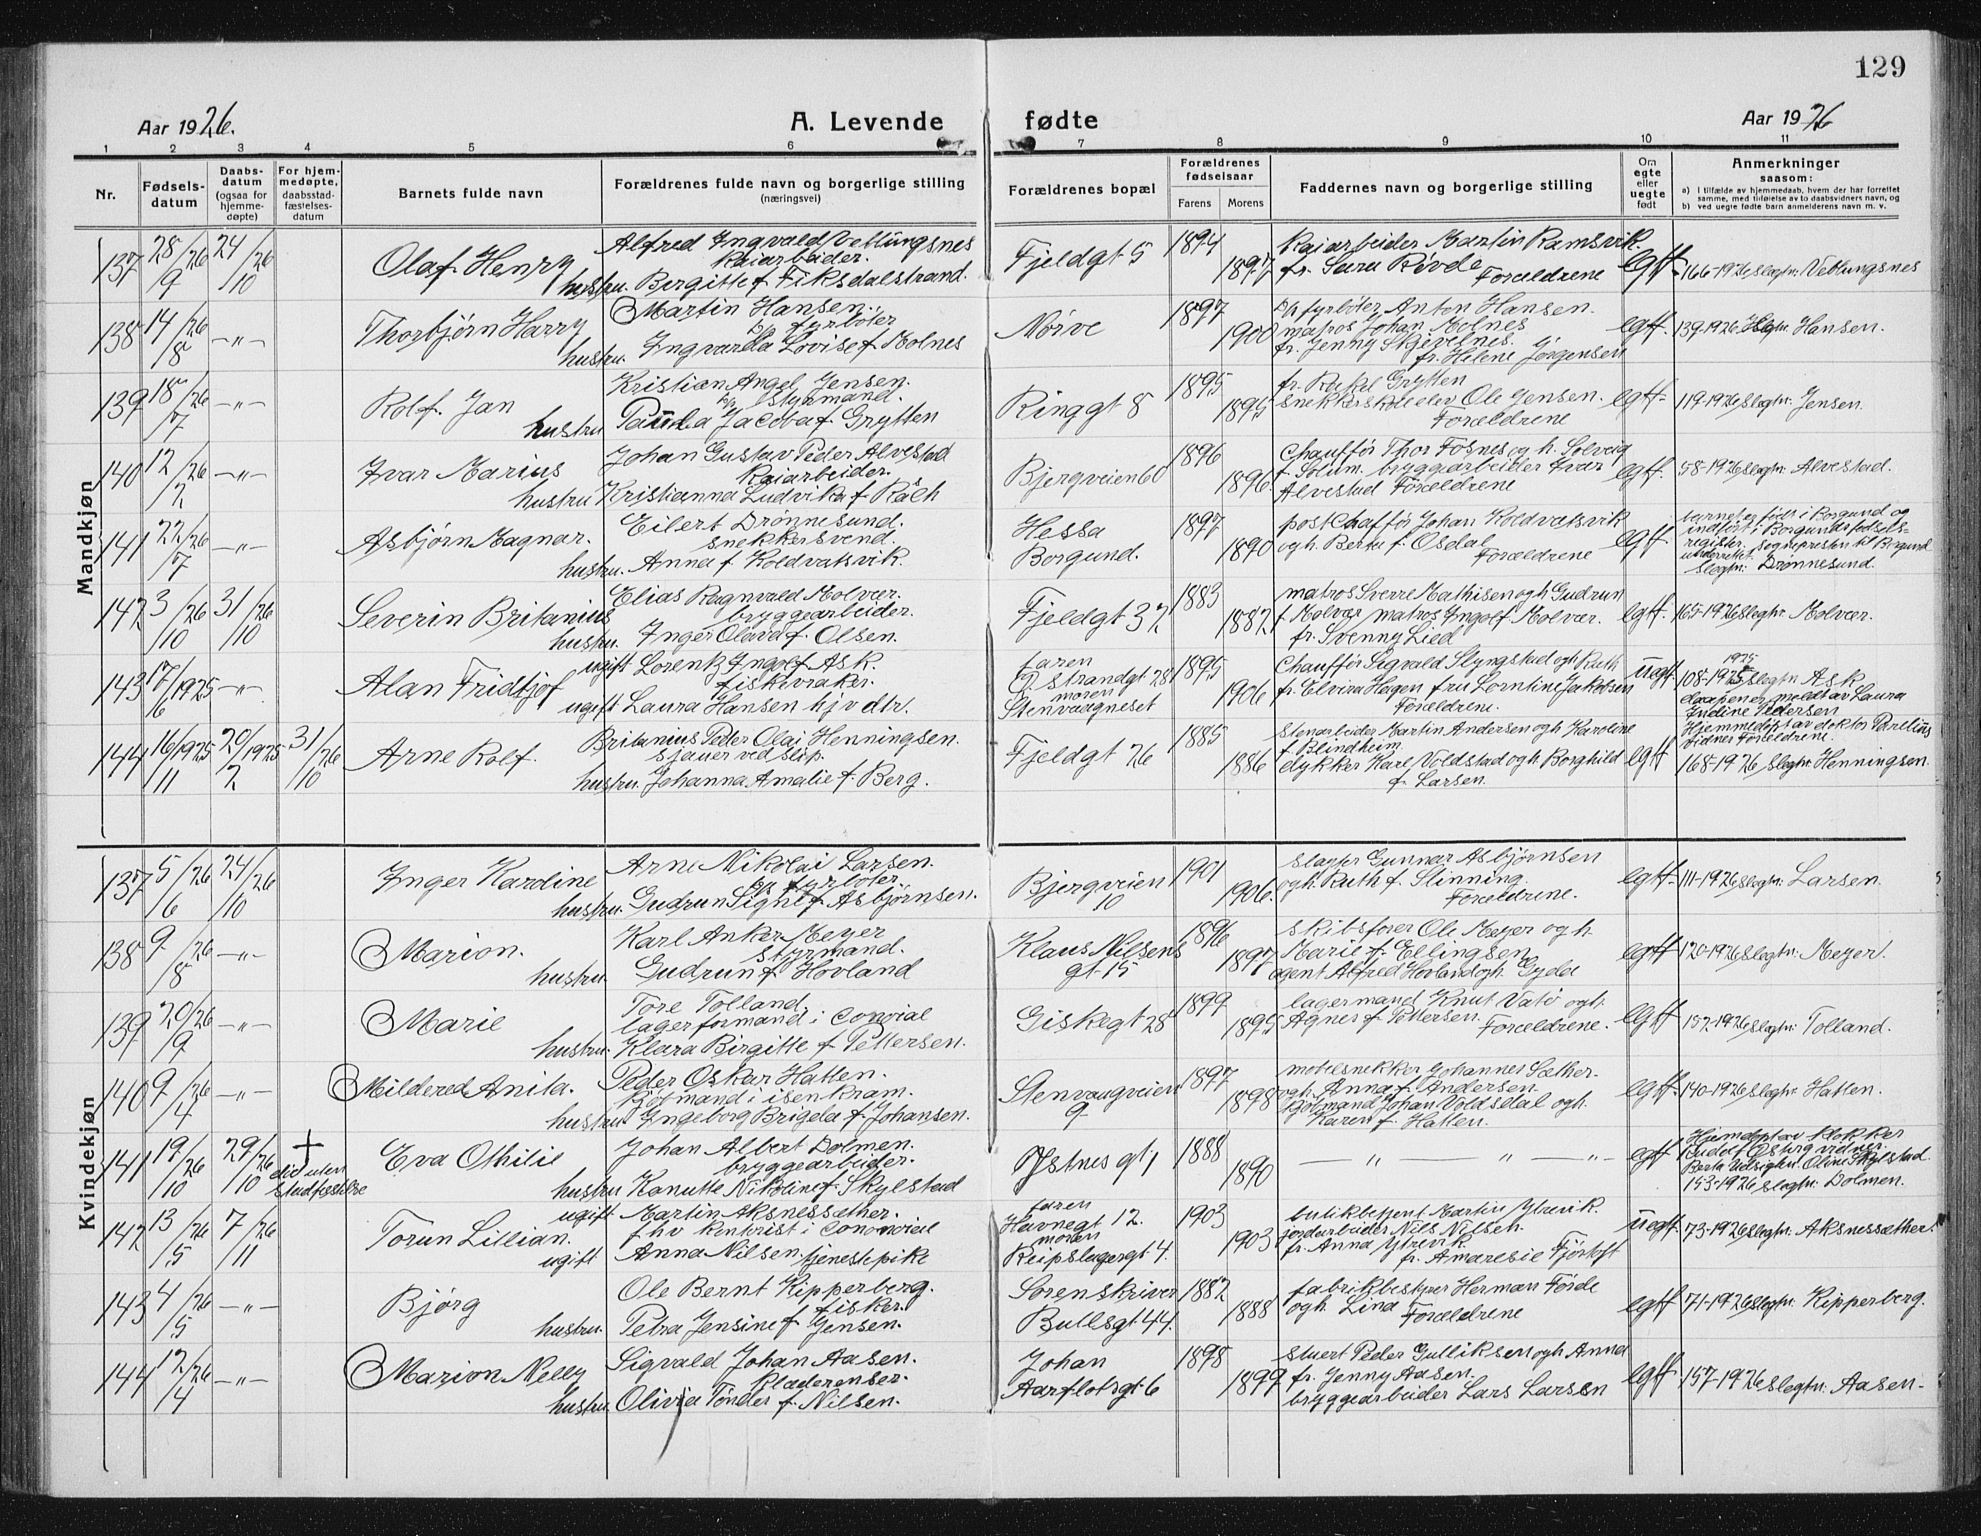 129
Aar 1926.
A. Levende fødte
Aar 1926
1 2 3 4 5 6 7 8 9 10 11
Nr.
Fødsels-
datum
Daabs-
datum
(ogsaa for
hjemme-
døpte)
For hjem-
medøpte,
daabsstad-
fæstelses-
datum
Barnets fulde navn
Forældrenes fulde navn og borgerlige stilling
(næringsvei)
Forældrenes bopæl
Forældrenes
fødselsaar
Farens Morens
Faddernes navn og borgerlige stilling
Om
egte
eller
uegte
født
Anmerkninger
saasom:
a) I tilfælde av hjemmedaab, hvem der har forrettet
samme, med tilføielse av to daabsvidners navn, og
b) ved uegte fødte barn anmelderens navn m. v.
Mandkjøn
137 28/9 26 24/10 26
Olaf Henry
Alfred Ingvald Vettungsnes
kaiarbeider.
hustru. Bergitte f Fiksdalstrand.
Fjeldgt 5
1894
1897
kaiarbeider Martin Ramsvik.
fr. Sara Røvde
Forældrene
egtf.
166-1926 slegtn: Vettungsnes
138 14/8 26 -"-
Thorbjørn Harry
Martin Hansen.
fyrbøter
hustru. Ingvarda Lovise f Molnes
Nørve
1897
1900
fyrbøter Anton Hansen.
matros Johan Molnes
fr. Jenny Skjevelnes.
fr. Helene Jørgensen
egtf.
139-1926 slegtn: Hansen.
139 18/7 26 -"-
Rolf Jan
Kristian Angel Jensen.
styrmand.
hustru Paula Jacoba f Grytten
Ringgt 8
1895
1895
fr. Rakel Grytten
snekkerskoleelev Ole Jensen.
Forældrene
egtf.
119-1926 slegtn: Jensen.
140 12/2 26 -"-
Ivar Marius
Johan Gustav Peder Alvestad
kaiarbeider.
hustru Kristianna Ludvika f Råeh
Bjergveien 60
1896
1896.
Chauffør Thor Fosnes og h. Solveig
f Solum. bryggearbeider Ivar
Alvestad Forældrene
egtf.
58-1926 slegtn: Alvestad.
141 22/7 26 -"-
Asbjørn Magnar.
Eilert Drønnesund.
snekkersvend.
hustru. Anna f Koldvaksvik.
Hessa
Borgund.
1897
1890
postchauffør Johan Koldvaksvik
ogh. Berta f. Osdal
Forældrene
egtf.
barnet er født i Borgund og
indført i Borgunds fødsels-
register. sognepresten til Borgund
underrettet.
slegtn: Drønnesund.
142 3/10 26 31/10 26
Severin Britanius
Elias Ragnvald Molvær.
bryggearbeider.
hustru. Inger Olava f. Olsen.
Fjeldgt 32
1883
1882
matros Sverre Mathisen ogh Gudrun
f Molvær matros Ingolf Molvær.
fr. Svenny Lied
egtf.
165-1926 slegtn: Molvær.
143 17/6 1925 -"-
Alan Fridtjof
ugift Lorentz Ingolf Ask.
fiskevraker.
ugift Laura Hansen hjv dtr.
faren
Ø strandgt 28
moren
Stenvaagneset
1895
1906
Chauffør Sigvald Slyngstad ogh Ruth
fr. Elvira Hagen fru Lorntine Jakobsen
Forældrene.
uegtf.
1925
108-1925 slegtn Ask
daapen er meldt av Laura
Indine Pedersen
144 16/11 1925 20/2 1925 31/10 26
Arne Rolf.
Britanius Peder Olai Henningsen.
sjauer ved slip.
hustru. Johanna Amalie f. Berg.
Fjeldgt 26
1885
1886
stenarbeider Martin Andersen ogh Karoline
f Blindheim.
dykker Karl Voldstad ogh. Borghild
f Larsen.
egtf
Hjemmedøpt av doktor Parelius
vidner Forældrene.
168-1926 slegtn: Henningsen.
Kvindekjøn
137 5/6 26 24/10 26
Inger Karoline
Arne Nikolai Larsen.
fyrbøter
hustru. Gudrun Signe f Asbjørnsen.
Bjergveien
10
1901
1906.
slagter Gunnar Asbjørnsen
ogh Ruth f. Slinning.
Forældrene.
egtf.
111-1926 slegtn: Larsen.
138 9/8 26 -"-
Marion.
Karl Anker Meyer
styrmand.
hustru. Gudrun f Hovland
Klaus Nilsens
gt. 15
1896
1897
skibsfører Ole Meyer ogh.
Marie f. Ellingsen
agent Alfred Hovland ogh. Gyda
egtf
120-1926 slegtn: Meyer.
139 20/9 26 -"-
Marie
Tore Tolland
lagerformand i Conovial
hustru. Klara Birgitte f Pettersen.
Giskegt 28
1899
1895
lagermand Knut Vatø ogh.
Agnes f Pettersen. Forældrene.
egtf
152-1926 slegtn: Tolland.
140 9/4 26 -"-
Mildered Anita.
Peder Oskar Hatten.
kjøpmand i isenkram.
hustru Ingeborg Brigela f Johansen.
Stenvaagveien
9
1897
1898
møbelsnekker Johannes Sæther.
ogh. Anna f Andersen.
kjølmand Johan Voldsdal ogh.
Karen f Hatten.
egtf.
140-1926 slegtn: Hatten.
141 19/10 26 29/10 26
+
død uten
stadfestelse
Eva Othilie
Johan Albert Dolmen.
bryggearbeider.
hustru Kanutte Nikoline f Skylstad
Ystnesgt 1
1888
1890
— " — " —
egtf
Hjemdøpt av klokker
Rudolf Østberg vidner:
Berta Velsighn. Oline Skylstad
153-1926 slegtn: Dolmen.
142 13/5 26 7/11 26
Torun Lillian.
ugift Martin Aksnessæther.
fhv kontorist i Conovial
ugift Anna Nilsen, tjenestepike
faren
Havnegt 12.
moren
Reipslagergt 4.
1903
1903
butikbetjent Martin Ytrevik.
jordarbeider Nils Nilsen.
fr. Anna Ytrevik.
fr. Amaresie Fjørtoft
uegtf.
73-1926 slegtn: Aksnessæther.
143 4/5 26 -"-
Bjørg
Ole Bernt Kipperberg.
fisker.
hustru. Petra Jensine f Jensen.
Sorenskriver
Bullsgt 44.
1882
1888
fabrikbestyrer Herman Førde
ogh Lina Forældrene
egtf
71-1926 slegtn: Kipperberg.
144 12/4 26 -"-
Marion Nelly
Sigvald Johan Aasen.
klæderenser.
hustru. Olivia Tønder f. Nilsen.
Johan
Aarflotsgt 6
1898
1899
stuert Peder Gulliksen ogh Anna
fr. Jenny Aasen.
bryggearbeider Lars Larsen
egtf
157-1926 slegtn: Aasen.